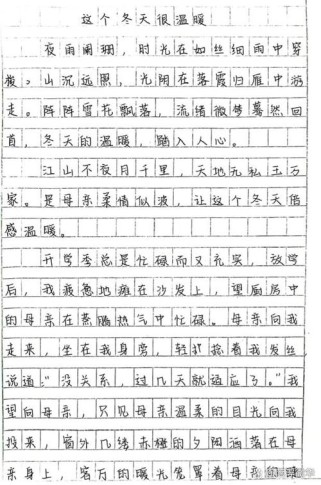 这个冬天很温暖
夜雨阑珊，时光在如丝细雨中穿
梭。山沉远照，光阴在落霞归雁中游
走。阵阵雪花飘落，流绪微梦蓦然回
首，冬天的温暖，踏入人心。
江山不夜月千里，天地无私玉万
家。是母亲柔情似波，让这个冬天倍
感温暖。
开学季总是忙碌而又充实，放学
后，我疲惫地瘫在沙发上，望厨房中
的母亲在蒸腾热气中忙碌。母亲向我
走来，坐在我身旁，轻抚捻着我发丝
说道：“没关系，过几天就适应了。”我
望向母亲，只见母亲温柔的目光向我
投来，窗外几缕赤橙的夕阳洒落在母
亲身上，客厅的暖光笼罩着母亲的